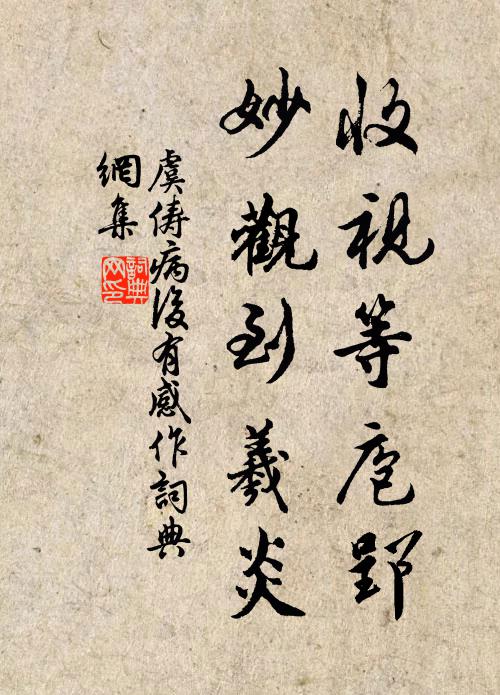 收視等庖郢
妙觀到羲炎
虞儔病後有感作詞典
網集
詞典網印